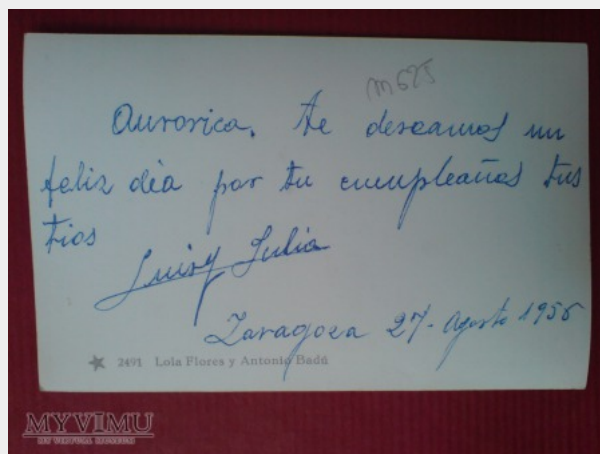 m625
Aurorica. Te deseamos un
feliz dia por tu cumpleaños tus
tios
Luis y Julia
Zaragoza 27-Agosto 1956
2491 Lola Flores y Antonio Badú
MYVIMU
MY VIRTUAL MUSEUM